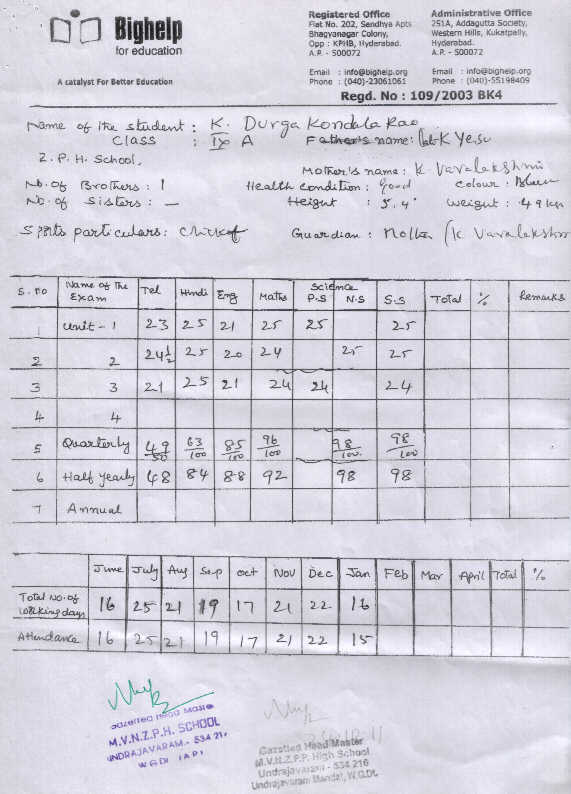 Bighelp
for education
A catalyst For Better Education
Registered Office
Flat No. 202, Sandhya Apts
Bhagyanagar Colony,
Opp : KPHB, Hyderabad.
A.P. - 500072
Email : info@bighelp.org
Phone : (040)-23061061
Administrative Office
251A, Addagutta Society,
Western Hills, Kukatpally,
Hyderabad.
A.P. - 500072
Email : info@bighelp.org
Phone : (040)-55198409
Regd. No : 109/2003 BK4
Name of the student : K. Durga Kondala Rao
Class : IX A Father's name: K Yesu
Z. P. H. School,
Mother's name : K. Varalakshmi
No. of Brothers : 1 Health condition : Good Colour :
No. of Sisters : — Height : 5.4" Weight : 49 kgs
Sports particulars : Guardian : Mother (K Varalakshmi
S. no Name of the Exam Tel Hindi Eng Maths Science P.S N.S S.S Total % Remarks
1 Unit - 1 23 25 21 25 25 25
2 2 24½ 25 20 24 25 25
3 3 21 25 21 24 24 24
4 4
5 Quarterly 49/50 63/100 85/100 96/100 98/100 98/100
6 Half yearly 48 84 88 92 98 98
7 Annual
June July Aug Sep Oct Nov Dec Jan Feb Mar April Total %
Total No. of working days 16 25 21 19 17 21 22 16
Attendance 16 25 21 19 17 21 22 15
Gazetted Head Master
M.V.N.Z.P.H. SCHOOL
UNDRAJAVARAM - 534 21
W.G.Dt (A.P)
Gazetted Head Master
M.V.N.Z.P.P. High School
Undrajavaram - 534 216
Undrajavaram Mandal, W.G.Dt.